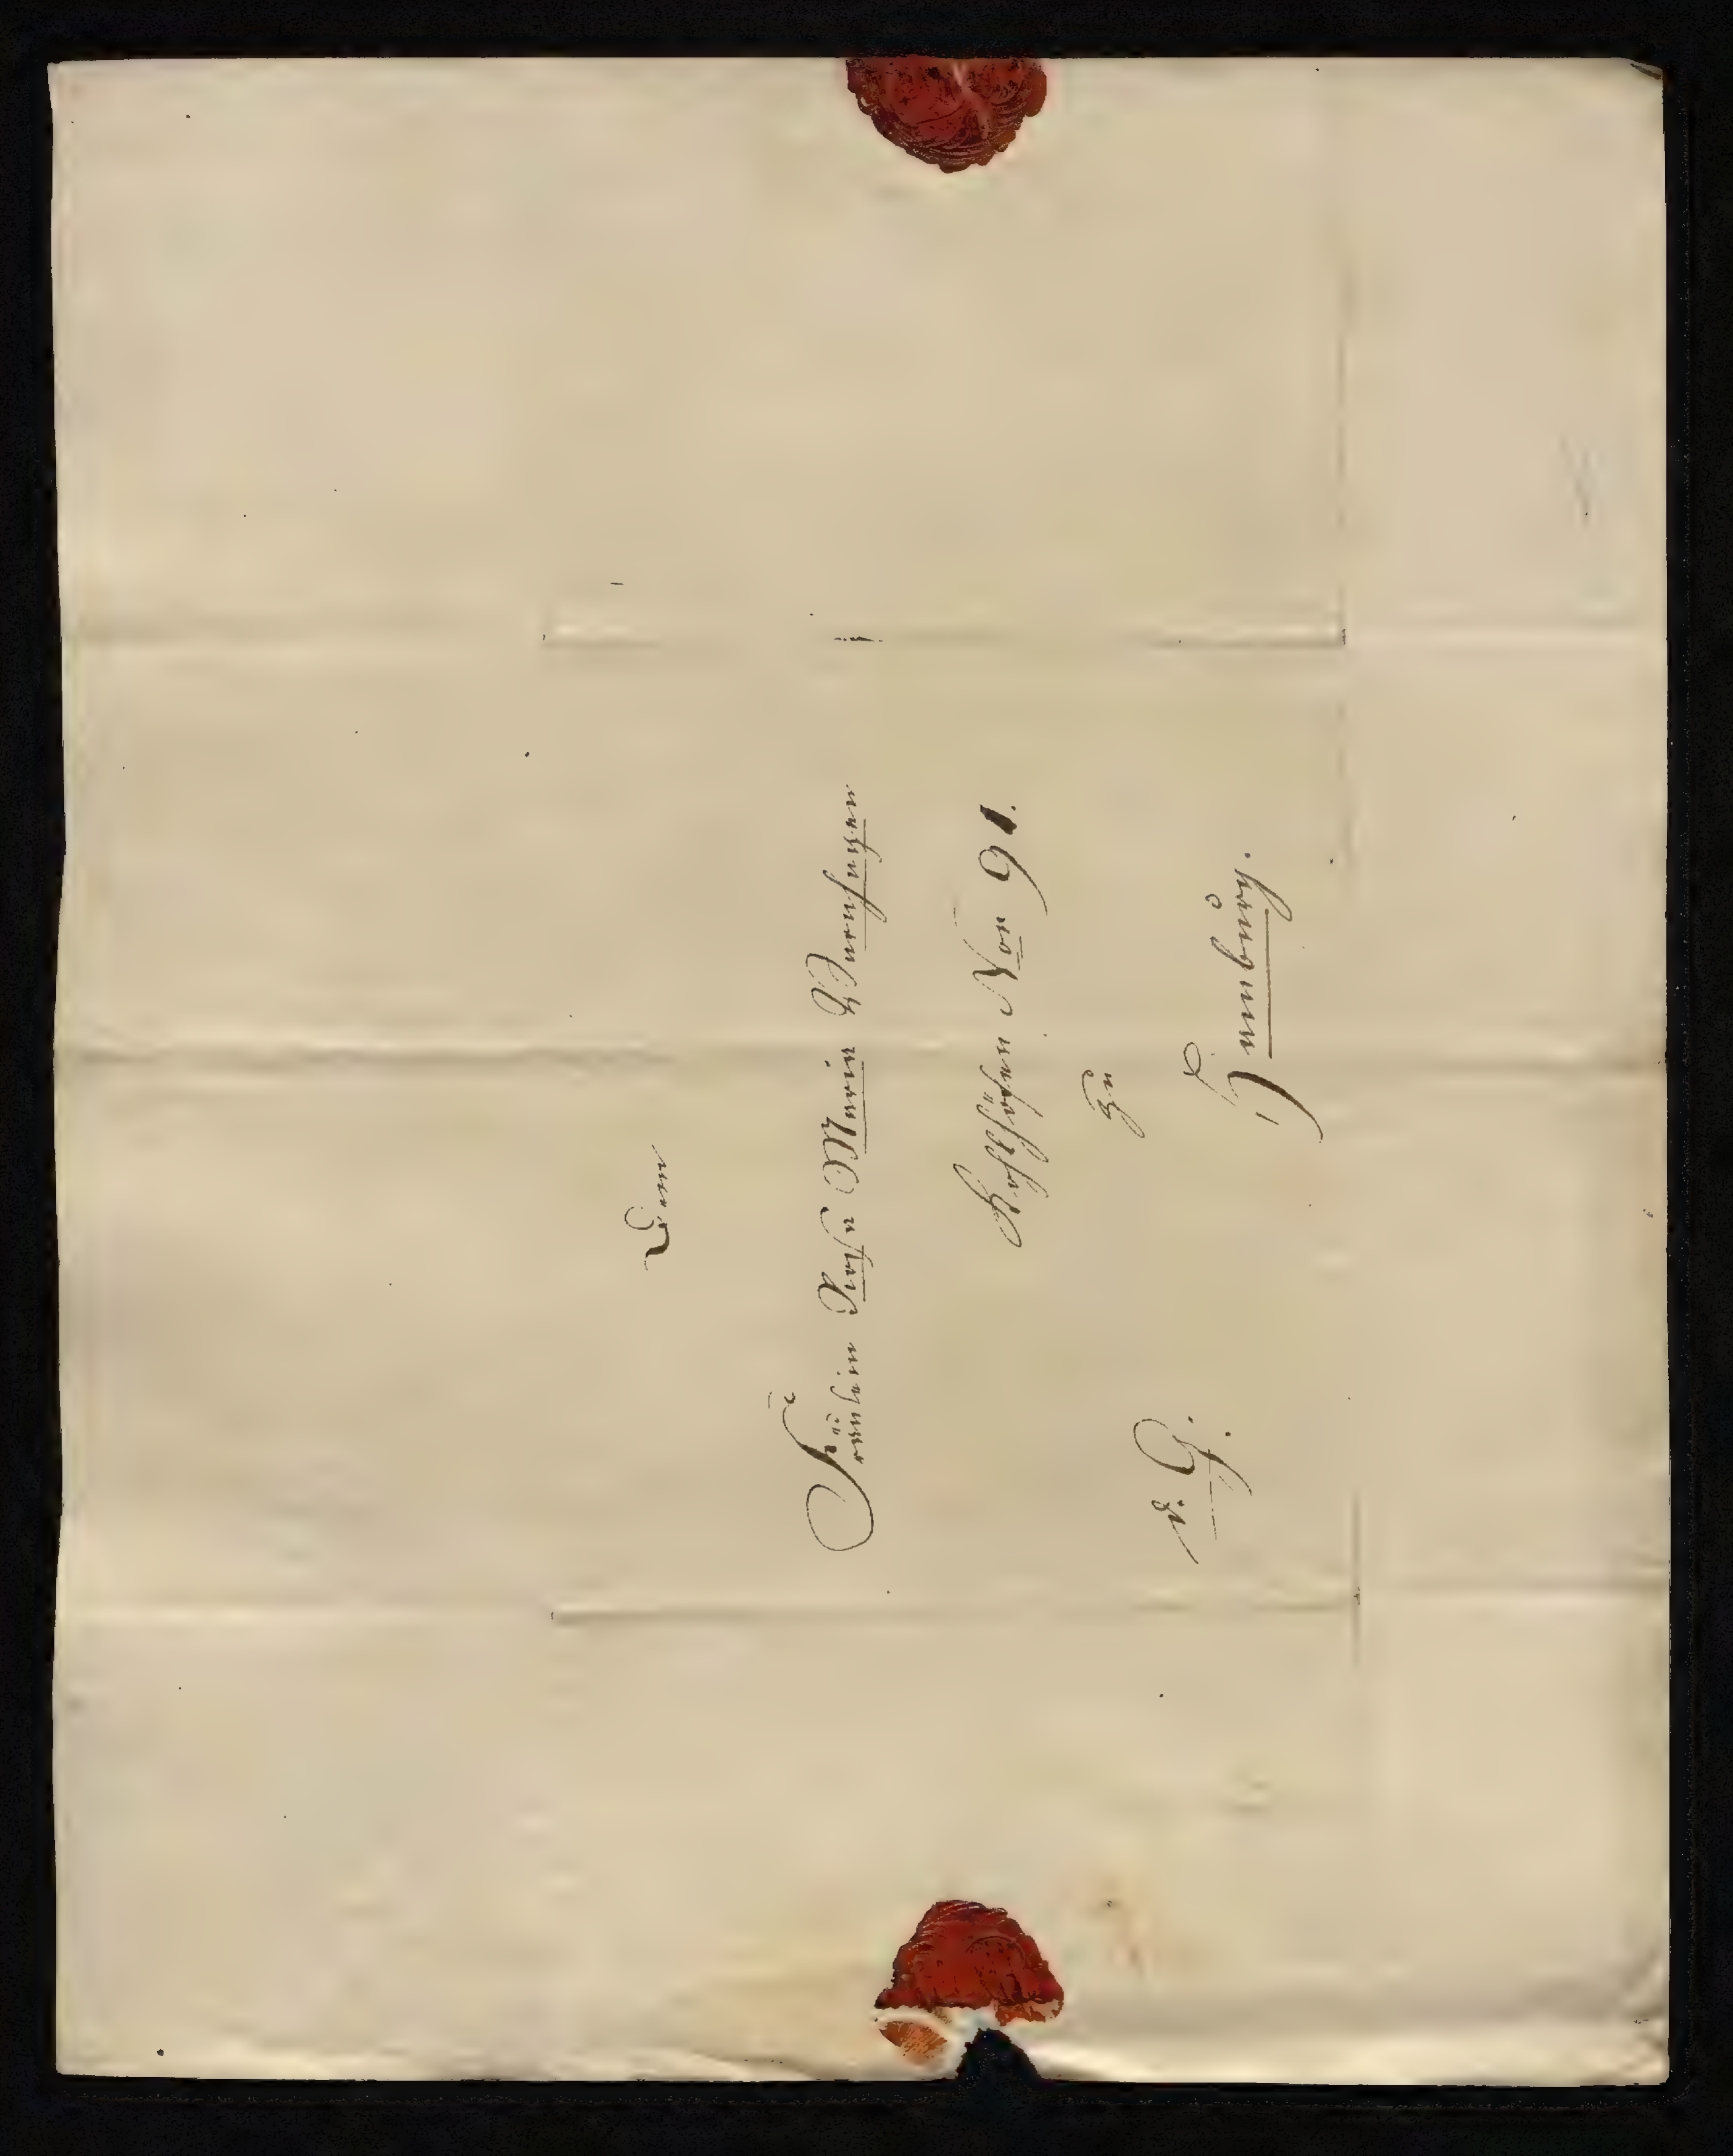 Dem
Fräulein Rosa Maria Varnhagen
Kohlhöfen Nor 91.
Zu
Hamburg.
d. G.